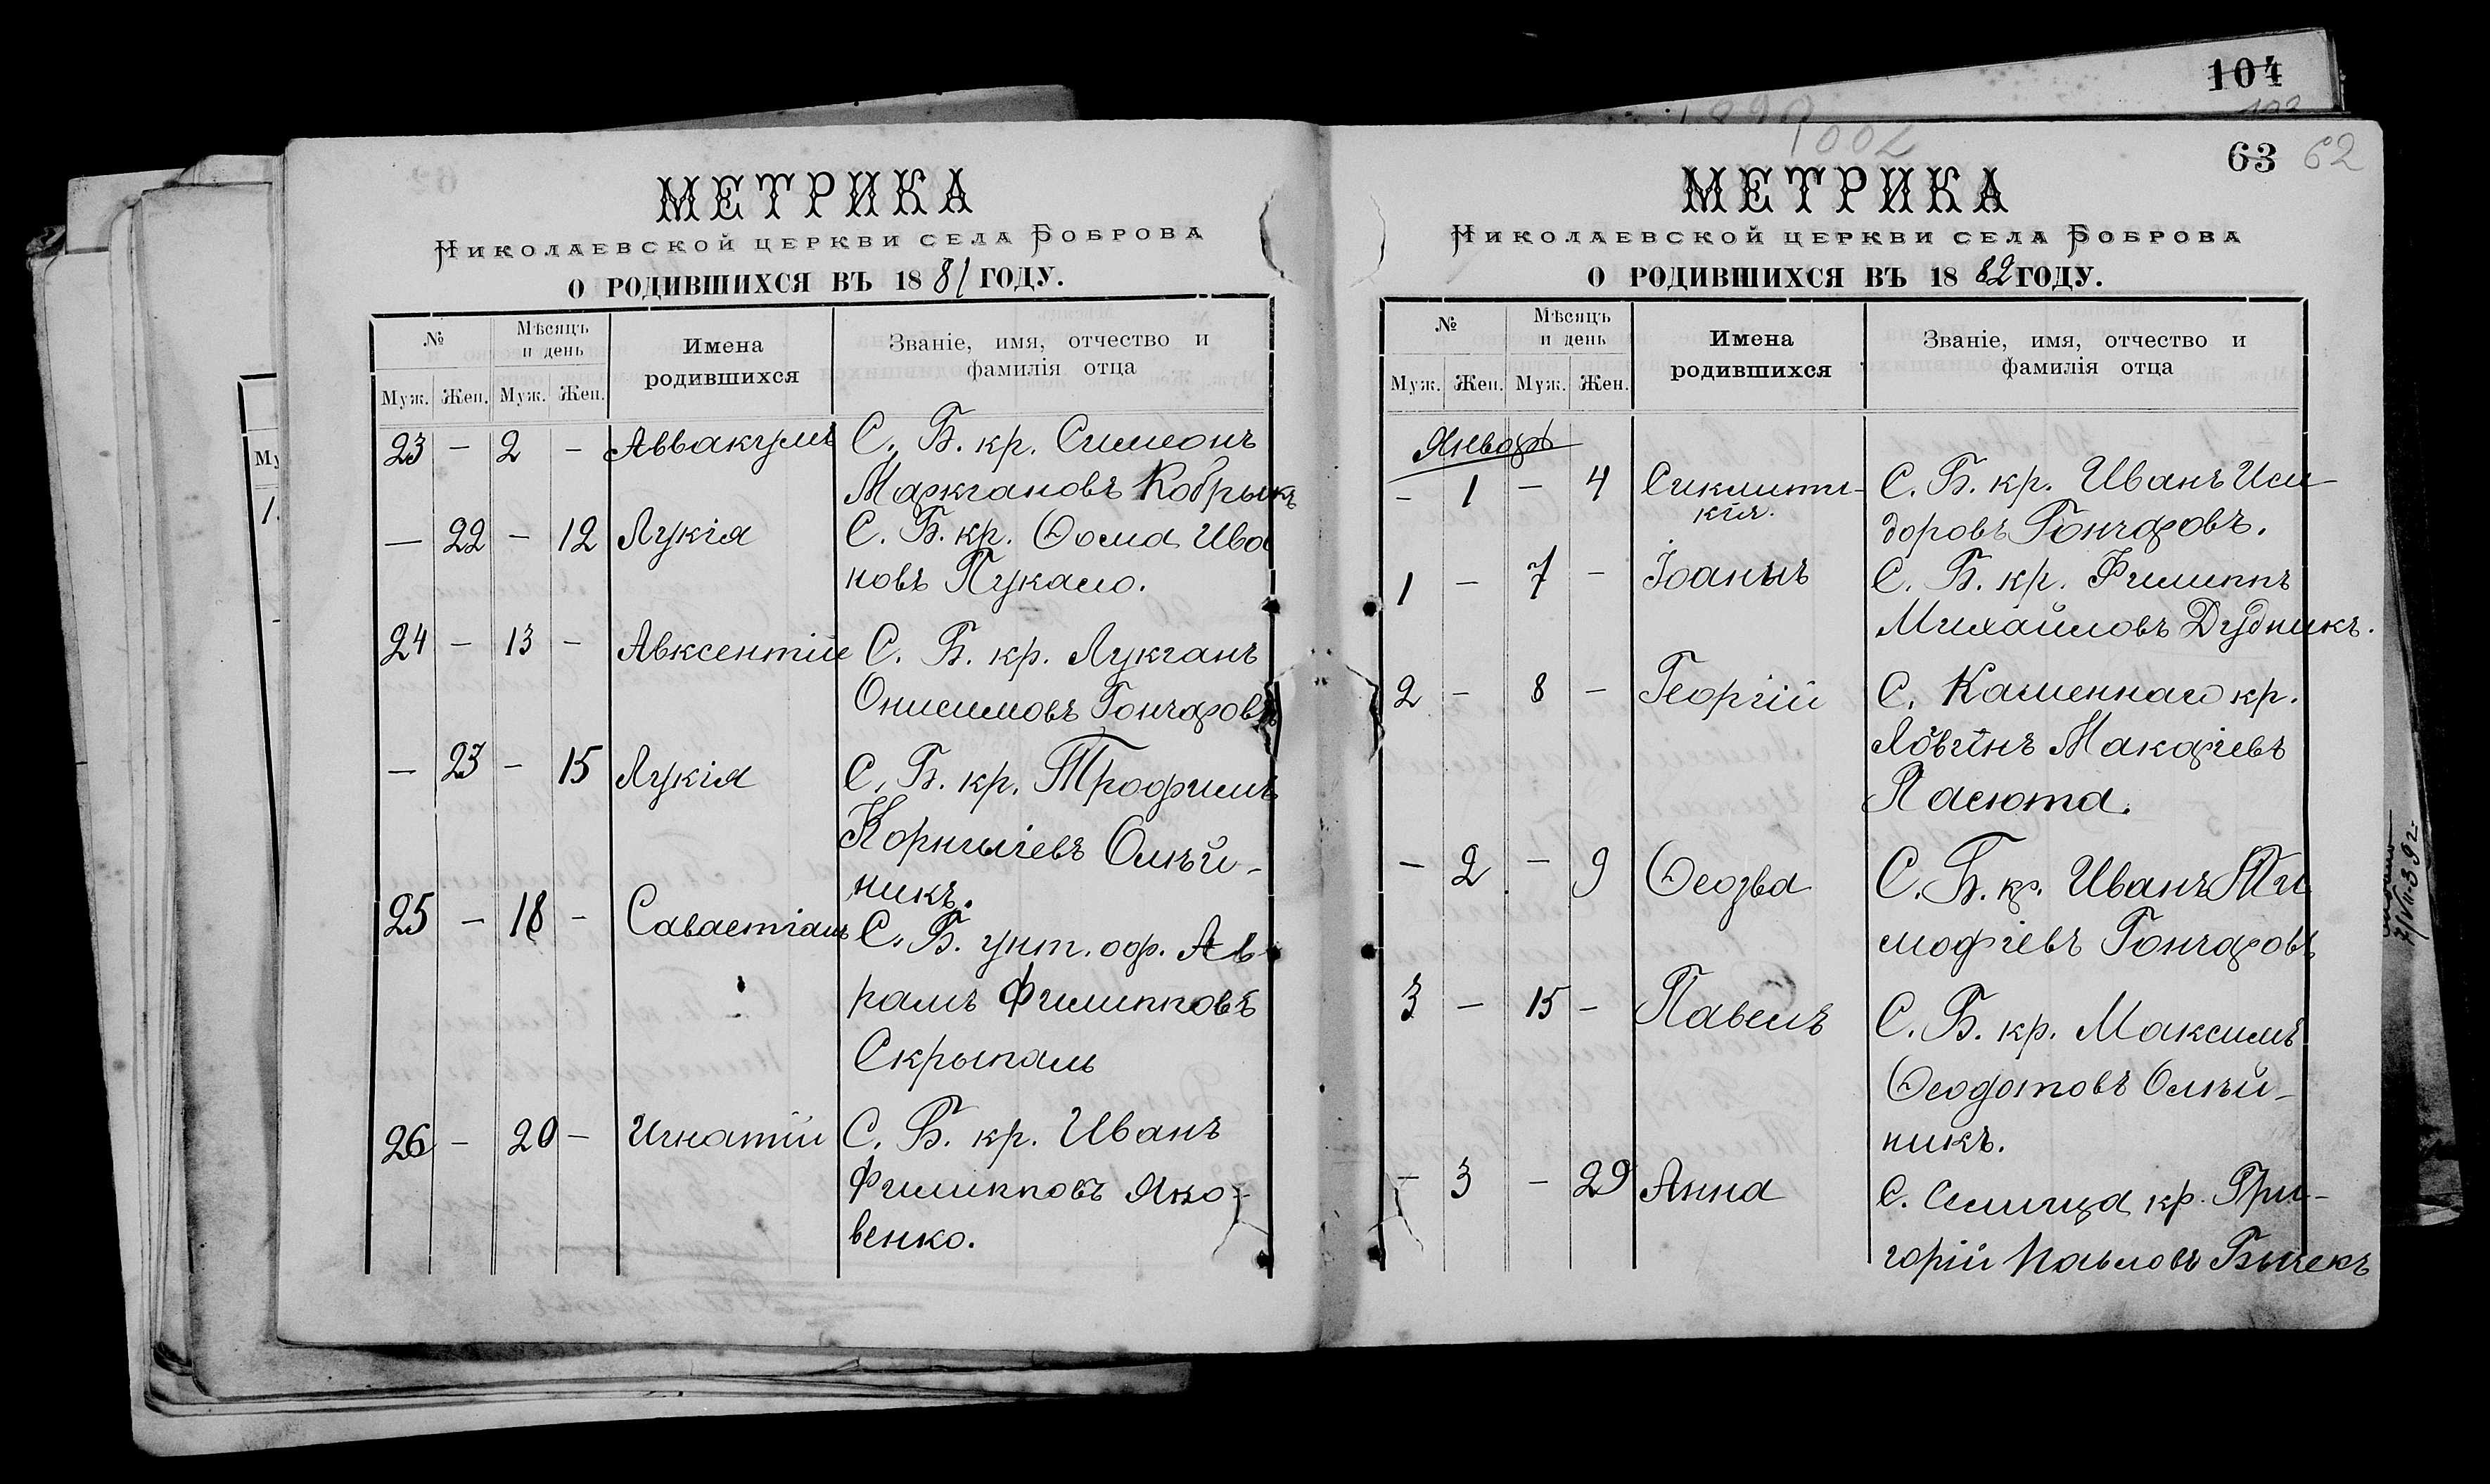 104
63 62
МЕТРИКА
НИКОЛАЕВСКОЙ ЦЕРКВИ СЕЛА БОБРОВА
О РОДИВШИХСЯ ВЪ 1881 ГОДУ.
№ Мѣсяцъ и день Имена родившихся Званіе, имя, отчество и фамилія отца
Муж. Жен. Муж. Жен.
23 – 2 – Аввакумъ С. Б. кр. Симеонъ
Маркіановъ Кобрыкъ
– 22 – 12 Лукія С. Б. кр. Ѳома Ива
новъ Пукало.
24 – 13 – Авксентій С. Б. кр. Лукіанъ
Онисимовъ Гончаровъ
– 23 – 15 Лукія С. Б. кр. Трофимъ
Корниліевъ Олѣй-
никъ.
25 – 18 – Савастіанъ С. Б. унт. оф. Ав-
рамъ Филипповъ
Скрыпаль
26 – 20 – Игнатій С. Б. кр. Иванъ
Филипповъ Яко-
венко.
МЕТРИКА
НИКОЛАЕВСКОЙ ЦЕРКВИ СЕЛА БОБРОВА
О РОДИВШИХСЯ ВЪ 1882 ГОДУ.
№ Мѣсяцъ и день Имена родившихся Званіе, имя, отчество и фамилія отца
Муж. Жен. Муж. Жен.
Январь
– 1 – 4 Сиклити- С. Б. кр. Иванъ Иси-
кія. доровъ Гончаровъ.
1 – 7 – Іоаннъ С. Б. кр. Филиппъ
Михайловъ Дудникъ.
2 – 8 – Георгій С. Каменнаго кр.
Логгинъ Макаріевъ
Пасюта.
– 2 – 9 Ѳеозва С. Б. кр. Иванъ Ти
моѳіевъ Гончаровъ
3 – 15 – Павелъ С. Б. кр. Максимъ
Ѳеодотовъ Олѣй-
никъ.
– 3 – 29 Анна С. Селища кр. Гри-
горій Павловъ Бычекъ